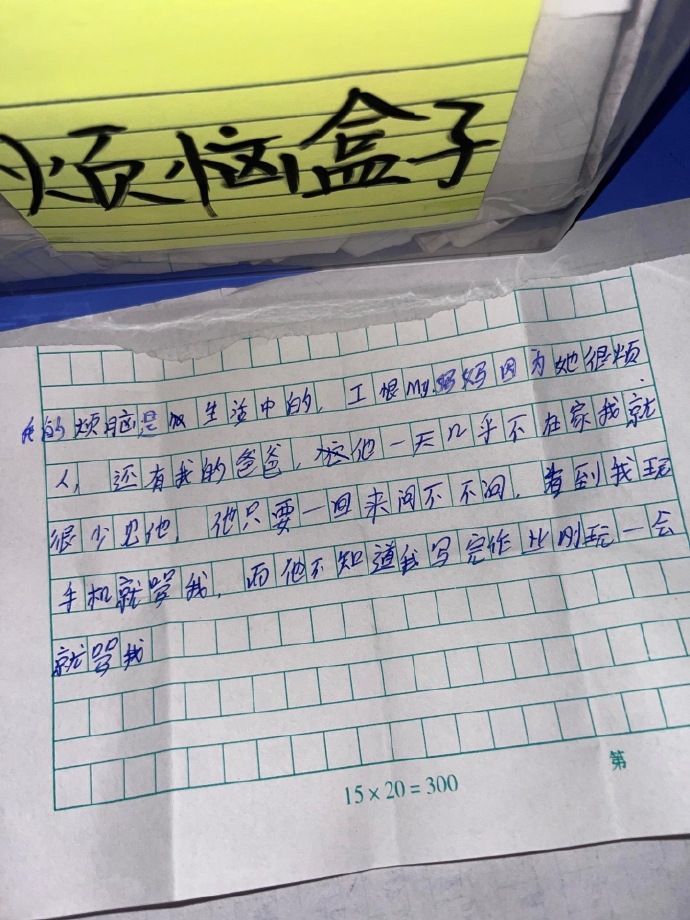 烦恼盒子
我的烦恼是 生活中的，工恨My.妈妈因为她很烦
人，还有我的爸爸，他一天几乎不在家我就
很少见他，他只要一回来问不不问，看到我玩
手机就骂我，而他不知道我写完作业刚玩一会
就骂我
15×20=300
第